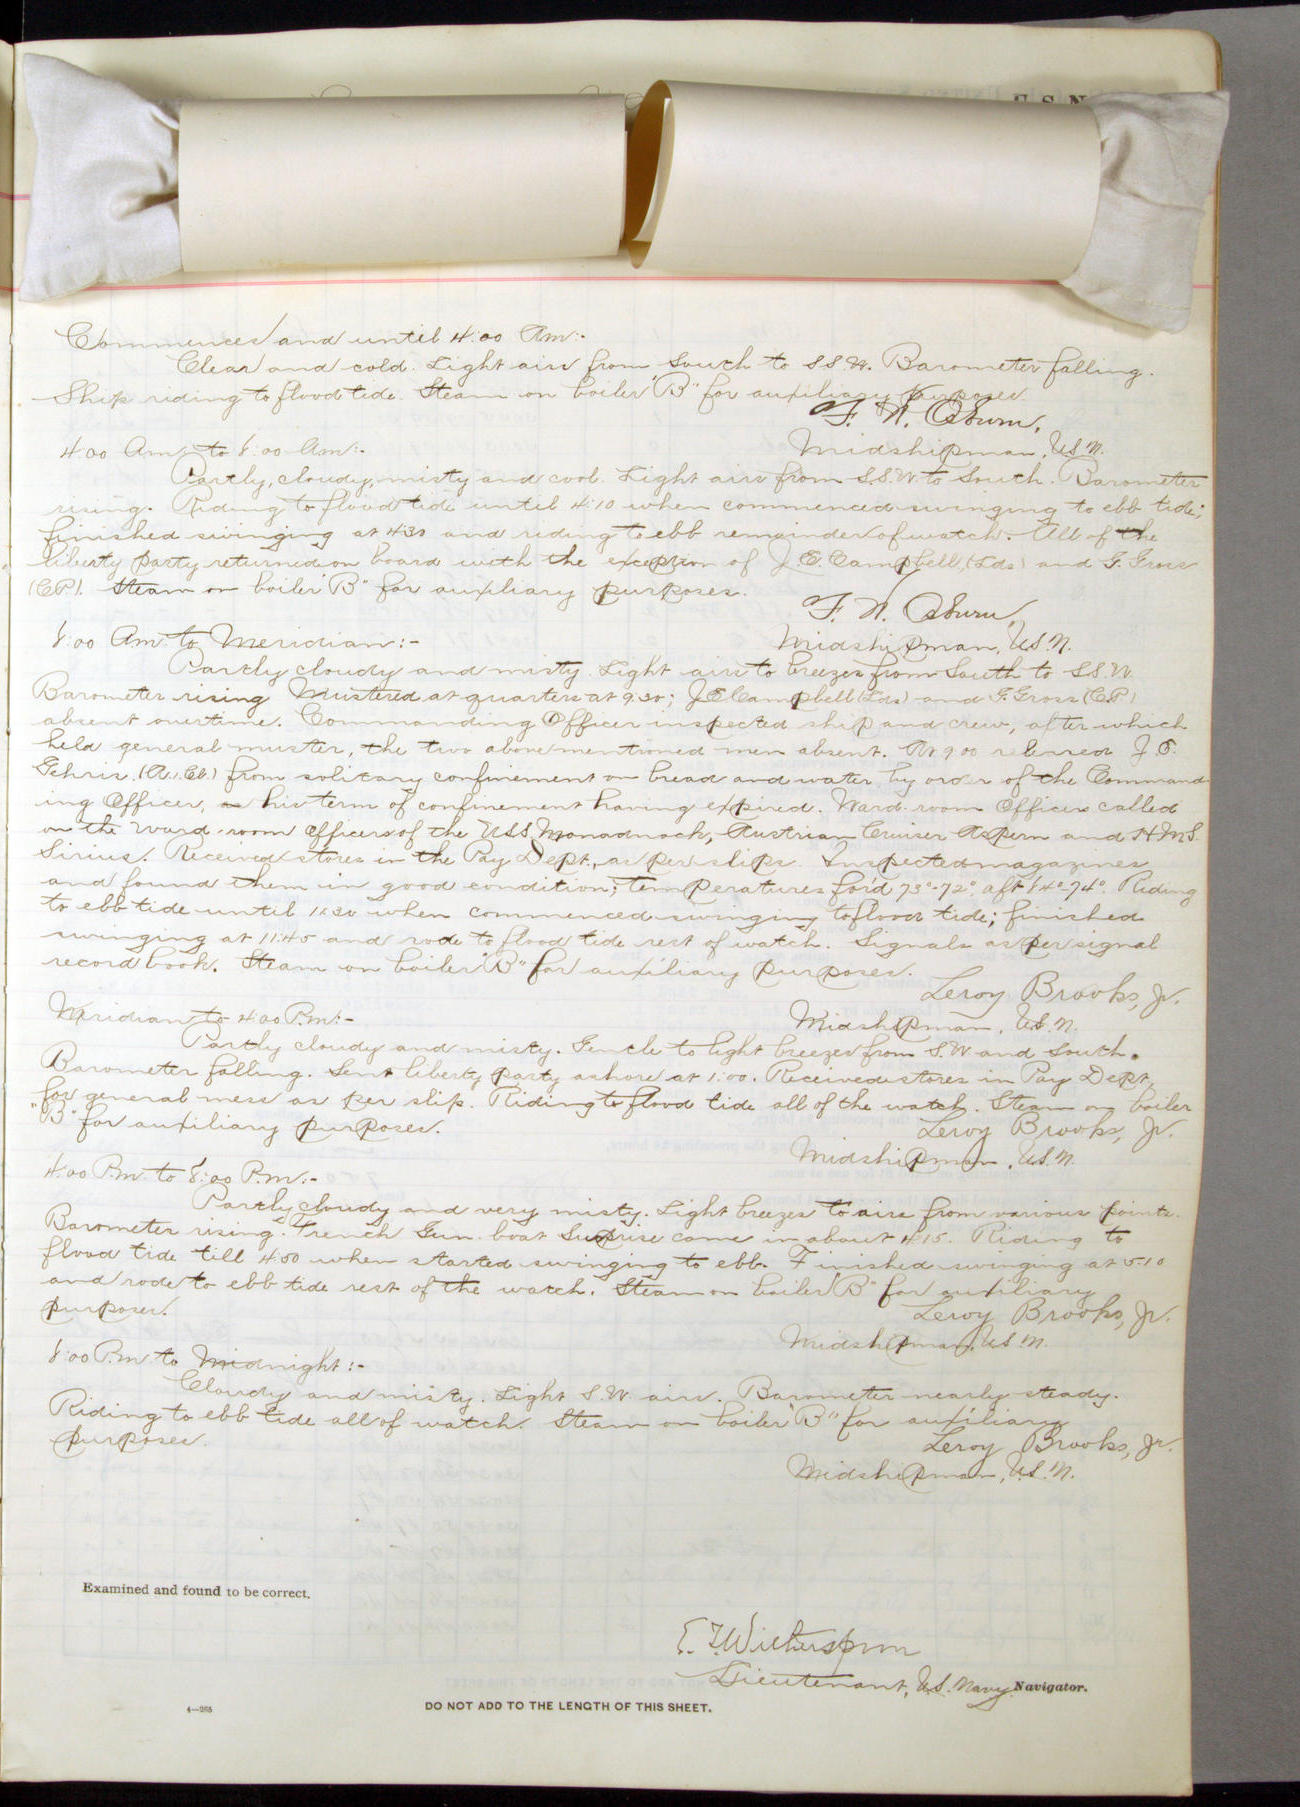 Commences and until 4:00 Am:-
Clear and cold. Light airs from South to SSW. Barometer falling.
Ship riding to flood tide. Steam on boiler "B" for auxiliary purposes.
F. N. Osburn,
Midshipman, U.S.N.
4:00 Am to 8:00 Am:-
Partly, cloudy, misty and cool. Light airs from S.S.W. to South. Barometer
rising. Riding to flood tide until 4:10 when commenced swinging to ebb tide;
finished swinging at 4:30 and riding to ebb remainder of watch. All of the
liberty party returned on board with the exception of J. E. Campbell, (Lds) and F. Gross
(C.P.). Steam on boiler "B" for auxiliary purposes.
F. N. Osburn,
Midshipman, U.S.N.
8:00 Am to Meridian:-
Partly cloudy and misty. Light airs to breezes from South to S.S.W.
Barometer rising Mustered at quarters at 9:30; J E Campbell (Lds) and F. Gross (C.P.)
absent overtime. Commanding Officer inspected ship and crew, after which
held general muster, the two above mentioned men absent. At 9:00 released J. E.
Gehris. from solitary confinement on bread and water by order of the Command-
ing Officer, his term of confinement having expired. Ward-room Officers called
on the Ward-room Officers of the USS Monadnock, Austrian Cruiser Aspern and H.M.S.
Sirius. Received stores in the Pay Dept., as per slips. Inspected magazines
and found them in good condition; temperatures for'd 73°-72°, aft 84°-74°. Riding
to ebb tide until 11:30 when commenced swinging to flood tide; finished
swinging at 11:45 and rode to flood tide rest of watch. Signals as per signal
record book. Steam on boiler "B" for auxiliary purposes.
Leroy Brooks, Jr.
Midshipman, U.S.N.
Meridian to 4:00 P.m:-
Partly cloudy and misty. Gentle to light breezes from S.W and South.
Barometer falling. Sent liberty party ashore at 1:00. Received stores in Pay Dept.
for general mess as per slip. Riding to flood tide all of the watch. Steam on boiler
"B" for auxiliary purposes.
Leroy Brooks, Jr.
Midshipman, U.S.N.
4:00 P.m. to 8:00 P.m:-
Partly cloudy and very misty. Light breezes to airs from various points.
Barometer rising. French Gun-boat Surprise came in about 4:15. Riding to
flood tide till 4:50 when started swinging to ebb. Finished swinging at 5:10
and rode to ebb tide rest of the watch. Steam on boiler "B" for auxiliary
purposes.
Leroy Brooks, Jr.
Midshipman, U.S.N.
8:00 P.m to Midnight:-
Cloudy and misty. Light S.W. airs. Barometer nearly steady.
Riding to ebb tide all of watch. Steam on boiler "B" for auxiliary
purposes.
Leroy Brooks, Jr.
Midshipman, U.S.N.
Examined and found to be correct.
E. T. Witherspoon
Lieutenant, U.S. Navy. Navigator.
4—265
DO NOT ADD TO THE LENGTH OF THIS SHEET.